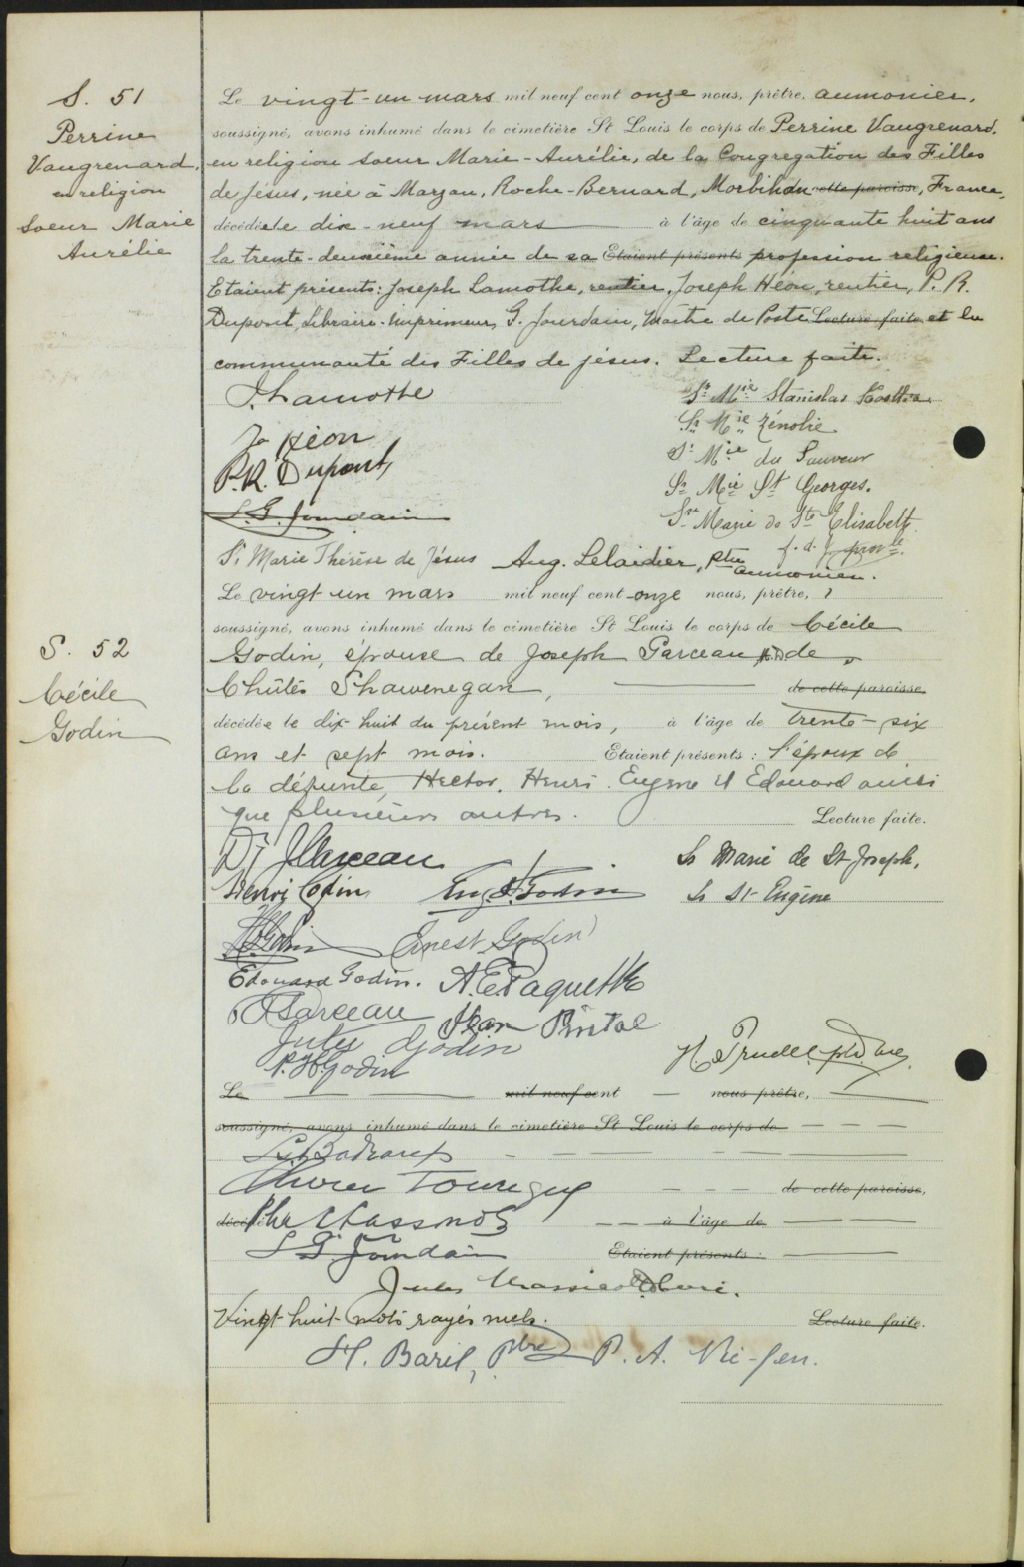 S. 51
Perrine
Vaugrenard,
en religion
Soeur Marie
Aurélie
Le vingt-un mars mil neuf cent onze nous, prêtre, aumonier,
soussigné, avons inhumé dans le cimetière St Louis le corps de Perrine Vaugrenard,
en religion soeur Marie-Aurélie, de la Congregation des Filles
de Jésus, née à Marzan, Roche-Bernard, Morbihan de cette paroisse, France,
décédée le dix-neuf mars à l'âge de cinquante huit ans
la trente-deuxième année de sa Etaient présents profession religieuse.
Etaient présents: Joseph Lamothe, rentier, Joseph Héon, rentier, P. R.
Dupont, Libraire-Imprimeur, G. Jourdain, Maître de Poste Lecture faite et la
communauté des Filles de Jésus. Lecture faite.
J. Lamothe
Sr Mie Stanislas Kostka
Jos Héon
Sr Mie Zénobie
P. R. Dupont,
Sr Mie du Sauveur
Sr Mie St Georges.
L. G. Jourdain
Sre Marie de Ste Elisabeth
f. d. J. prov.le
Sr Marie Thérèse de Jésus Aug. Lelaidier, ptre
aumonier.
Le vingt un mars mil neuf cent onze nous, prêtre,
soussigné, avons inhumé dans le cimetière St Louis le corps de Cécile
S. 52
Cécile
Godin
Godin, épouse de Joseph Garceau, M.D. de
Chûtes Shawenegan, de cette paroisse,
décédée le dix-huit du présent mois, à l'âge de trente-six
ans et sept mois. Etaient présents: l'époux de
la défunte, Hector, Henri, Eugène et Edouard ainsi
que plusieurs autres. Lecture faite.
Dr J Garceau
Sr Marie de St Joseph,
Henri Godin Eug. Godin
Sr St Eugène
H Godin Ernest Godin
Edouard Godin. A. E. Paquette
Garceau Jean Pintal
Jules Godin
P. H. Godin
H. Trudel ptre
Le mil neuf cent nous prêtre,
soussigné, avons inhumé dans le cimetière St Louis le corps de
Olivier Tourigny
de cette paroisse,
décédé à l'âge de
L G Jourdain
Etaient présents:
Jules Massicotte
Vingt huit mots rayés nuls.
Lecture faite.
H. Baril, Ptre P. A. Vic-Gen.